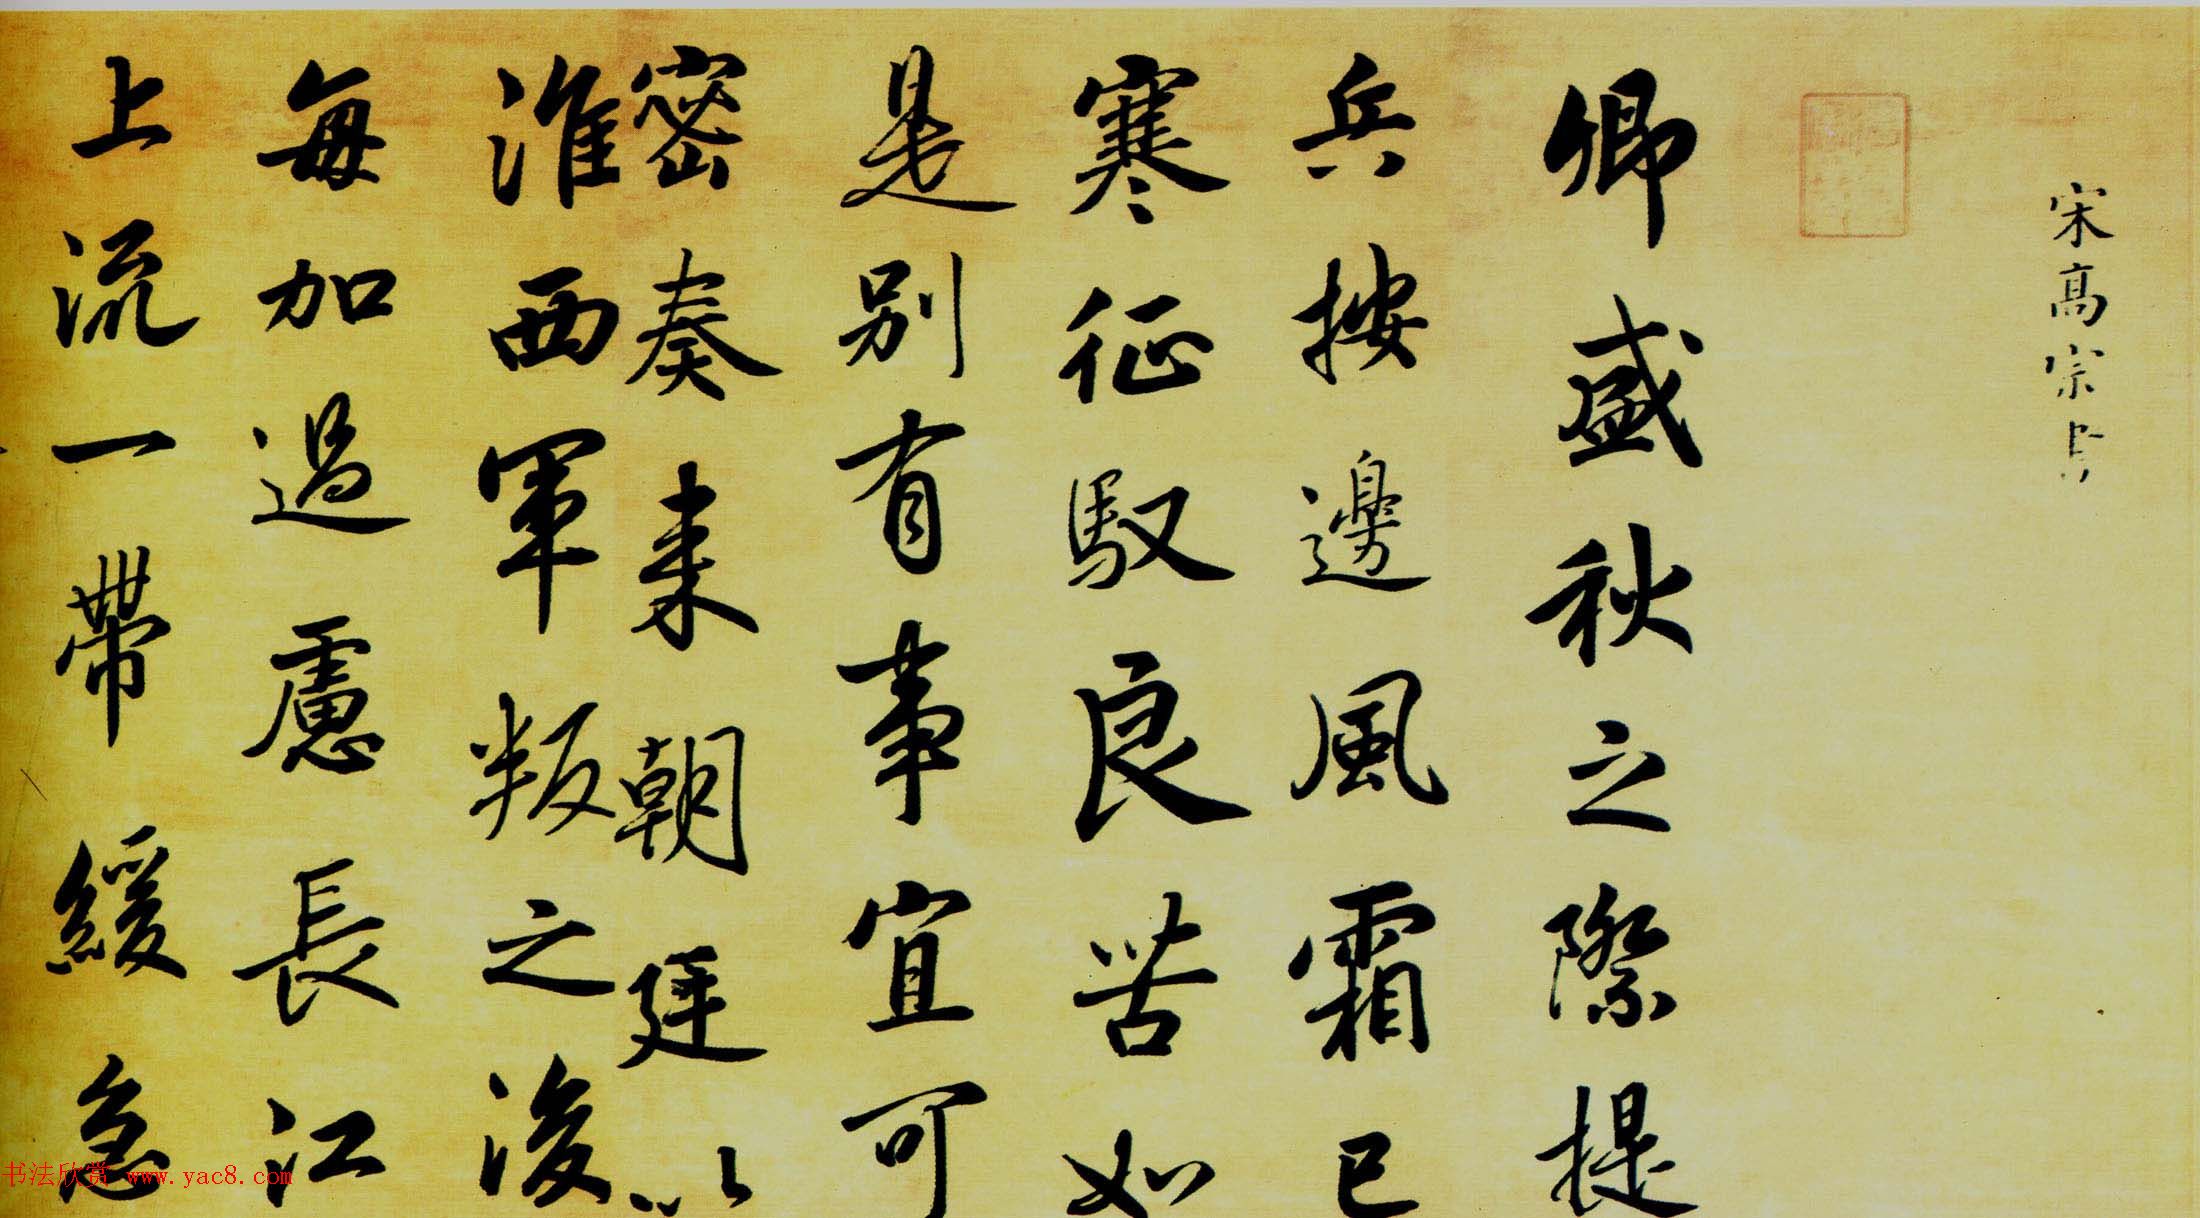 宋高宗
卿盛秋之際提
兵按邊風霜已
寒征馭良苦如
是别有事宜可
密奏来朝廷以
淮西軍叛之後
每加過慮長江
上流一帶緩急
书法欣赏 www.yac8.com